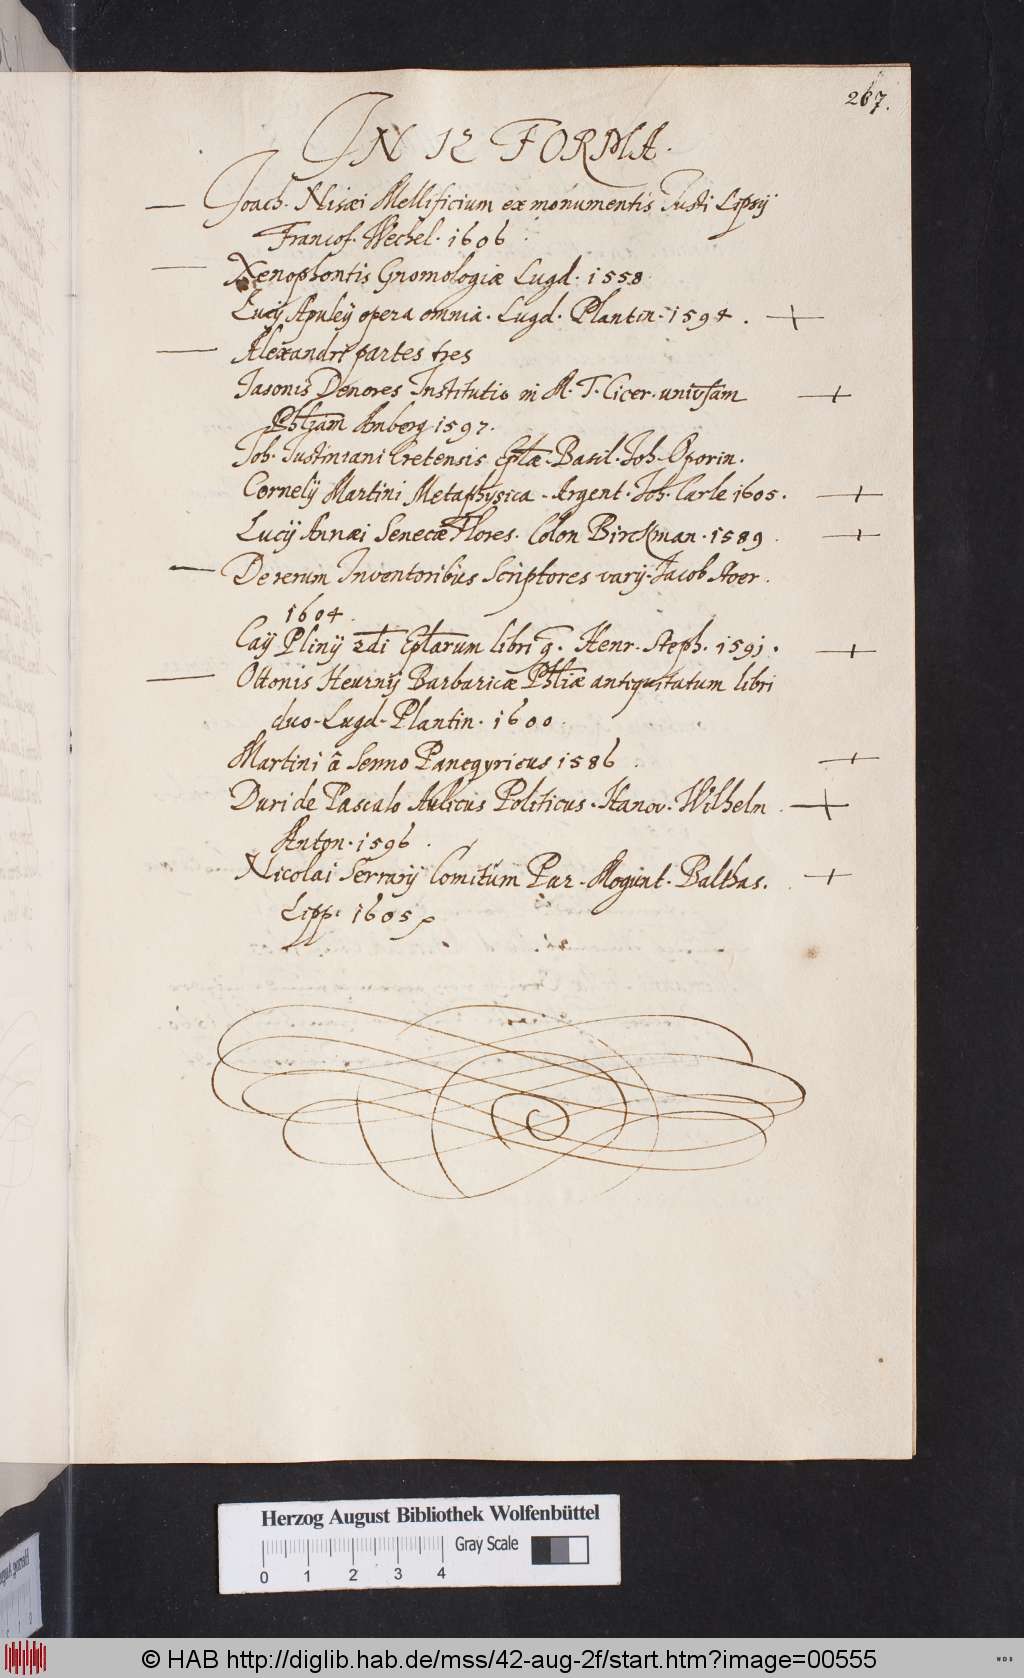 267.
IN 12 FORMA.
Joach. Nisæi Mellificium ex monumentis Justi Lipsÿ
Francof. Wechel. 1606
Xenophontis Gnomologiæ Lugd. 1558.
Lucÿ Apuleÿ opera omnia. Lugd. Plantin. 1594.
Alexandri partes tres
Jasonis Denores Institutio in M. T. Cicer. univsam
Amberg 1597.
Joh. Justiniani Cretensis Eplæ. Basil. Joh. Oporin.
Cornelÿ Martini Metaphysica. Argent. Joh. Carle 1605.
Lucÿ Annæi Senecæ Flores. Colon Birckman. 1589.
De rerum Inventoribus Scriptores varÿ. Jacob Stoer.
1604.
Caÿ Plinÿ 2di Eplarum libri 9. Henr. Steph. 1591.
Ottonis Heurnÿ Barbaricæ Phliæ antiquitatum libri
duo. Lugd. Plantin. 1600.
Martini â Senno Panegyricus 1586.
Duri de Pascalo Aulicus Politicus. Hanov. Wilheln
Anton. 1596.
Nicolai Serrarÿ Comitum Par. Mogunt. Balthas.
Lipp. 1605
Herzog August Bibliothek Wolfenbüttel
Gray Scale
0 1 2 3 4
© HAB http://diglib.hab.de/mss/42-aug-2f/start.htm?image=00555